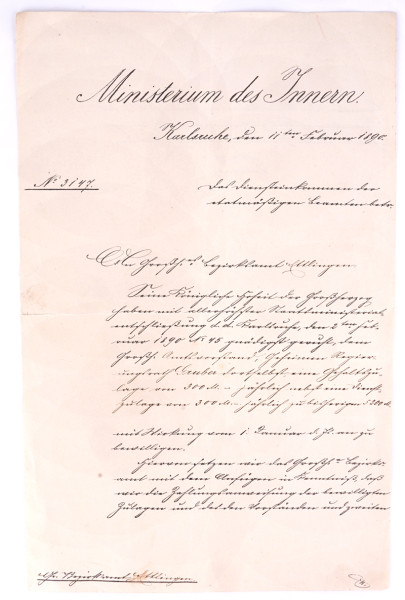 Ministerium des Innern.
Karlsruhe, den 11ten Februar 1890.
No 3147.
Das Diensteinkommen der
etatmäßigen Beamten betr.
An Großh. Bezirksamt Ettlingen
Seine Königliche Hoheit der Großherzog
haben mit allerhöchster Staatsministerial-
entschließung d.d. Karlsruhe, den 2ten Feb-
ruar 1890 No 45 gnädigst geruht, dem
Großh. Amtsvorstand, Geheimen Regie-
rungsrath daselbst eine Gehaltszu-
lage von 300 M. jährlich nebst eine Dienst-
zulage von 300 M. jährlich zu bisherigen
mit Wirkung vom 1. Januar d. Js. an zu
bewilligen.
Hiervon setzen wir das Großh. Bezirks-
amt mit dem Anfügen in Kenntniß, daß
wir die Zahlungsanweisung der bewilligten
Zulagen und bei den Vorständen und zweiten
Gr. Bezirksamt Ettlingen